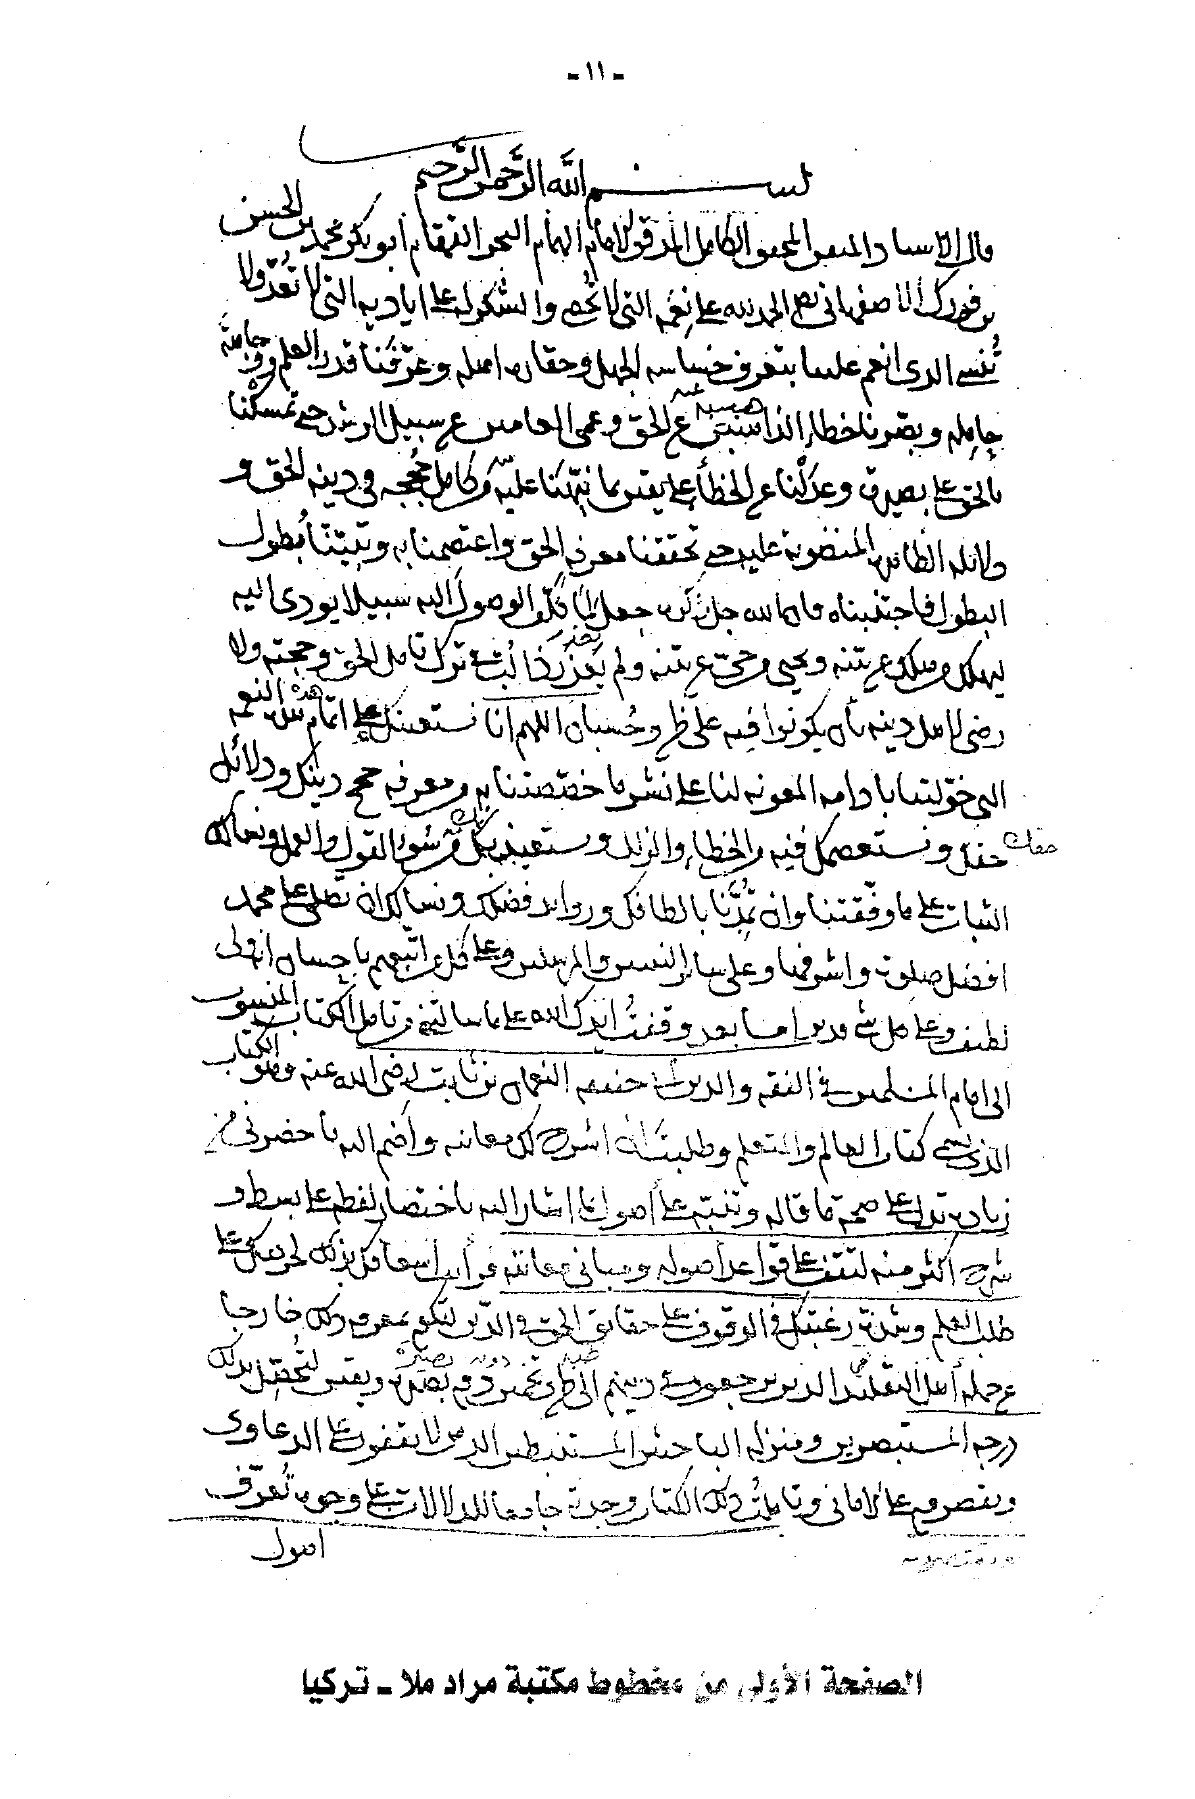 - ١١ -
بسم الله الرحمن الرحيم
قال الاستاد المتقن المحقق الكامل المدقق الامام الهمام البحر القمقام ابو بكر محمد بن الحسن
بن فورك الاصفهاني الحمد لله على نعمه التي لا تحصى والشكر له على اياديه التي لا تعد ولا
تنسى الذي انعم علينا بتعرف خساسه الجهل وحقاره اهله وعرفنا قدر العلم و
وبصرنا خطاء الذاهبين عن الحق وعمى العامين عن سبيل الرشد حتى تمسكنا
بالحق على بصيرة وعدلنا عن الخطأ على يقين بما نبهنا عليه من كامل حججه في دينه الحق و
دلائله المنصوبة عليه حتى تحققنا معرفه الحق واعتصمنا به وتبيننا بطول
البطول فاجتنبناه فانما الله جل ذكره جعل الوصول اليه سبيلا يودى اليه
ليهلك من هلك عن بينه ويحيى من حي عن بينه ولم يعذر في ترك تامل الحق وحججه ولا
رضى لاهل دينه بأن يكونوا فيه على ظن وحسبان اللهم انا نستعينك على اتمام هذه النعمه
التي خولتنا بادامه المعونه لنا على نشر ما خصصتنا به من معرفه حجج دينك ودلائل
حقك ونستعصمك فيه من الخطاء والزلل ونستعيذ بك من شر القول والعمل ونسالك
حقك
الثبات على ما وفقتنا وان تمدنا بالطافك وزوايد فضلك ونسالك ان تصلى على محمد
افضل صلوة واشرفها وعلى سائر النبيين والمرسلين وعلى كل من اتبعهم باحسان انه ولى
لطيف وعلى كل شي قدير اما بعد وقفت ايدك الله على ما سالت من تامل الكتاب المنسوب
الى امام المسلمين في الفقه والدين ابي حنيفه النعمان بن ثابت رضى الله عنه وهو الكتاب
الذي يسمى كتاب العالم والمتعلم وطلبت أن اشرح لك معانيه وأضم اليه ما حضرني من
زيادة تدل على صحة ما قاله وتنبه على أصول ما اشار اليه باختصار لفظه على بسط و
شرح اكثر منه لتقف على قواعد أصوله ومباني معانيه فرأيت اسعافك بذلك لحرصك على
طلب العلم وشدة رغبتك في الوقوف على حقايق الحق في الدين لتكون بمعرفه ذلك خارجا
عن جمله أهل التقليد الذين يرجعون في دينهم الى ظن وتخمين دون بصيرة ويقين لتحصل بذلك
درجه المستبصرين ومنزله الباحثين المستنبطين الذين لا يقفون على الدعاوى
على الاماني وتاملت ذلك الكتاب وجدته جامعا للدلالات على وجوه تعرف
اصول
الصفحة الأولى من مخطوط مكتبة مراد ملا - تركيا